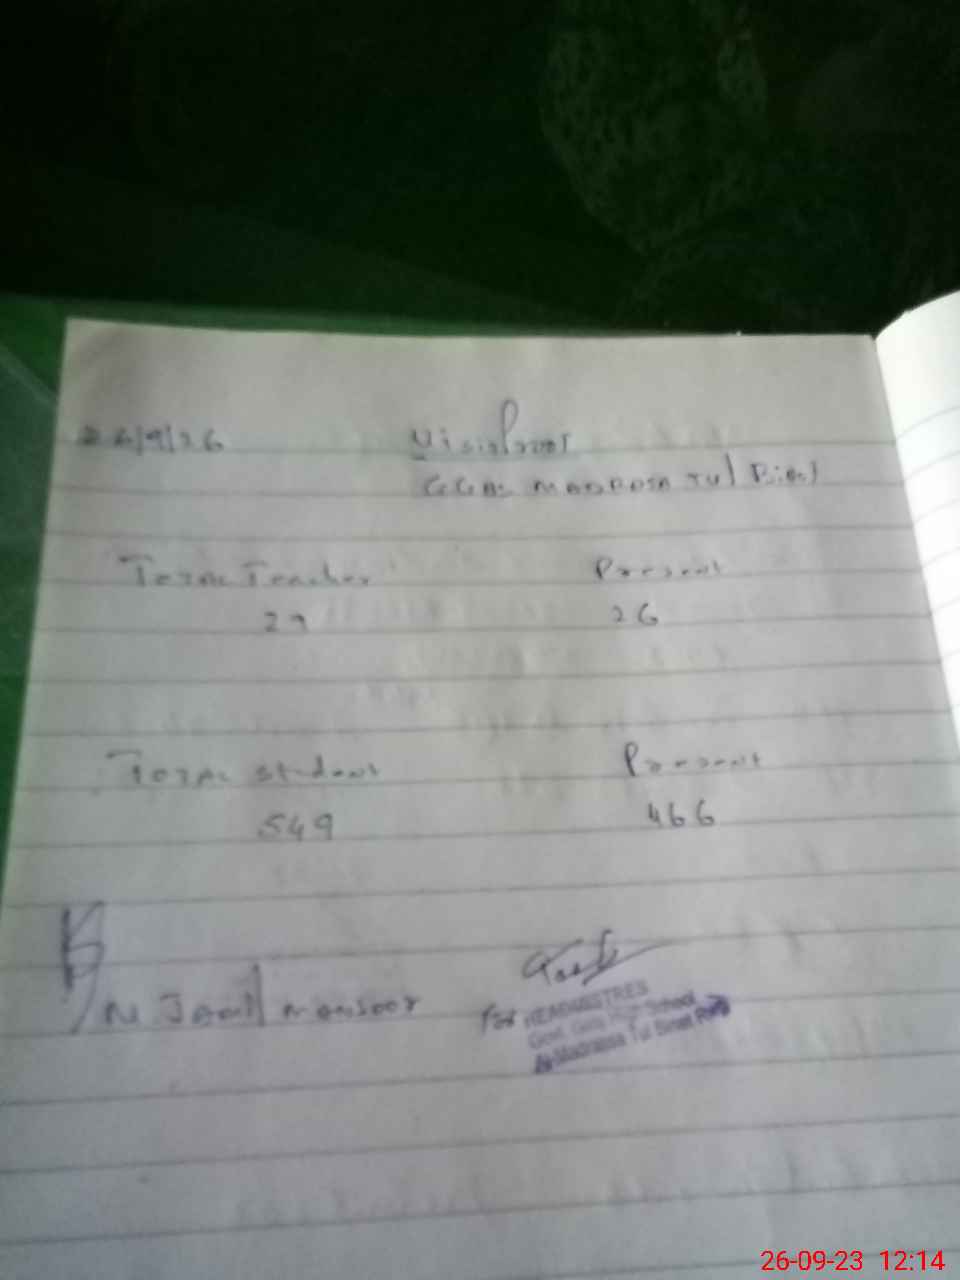 26/9/26 Visit Proof
GGHS MADRASA TUL Binat
Total Teacher Present
29 26
Total Student Present
549 466
M Jamil Mansoor
for HEADMISTRES
Govt. Girls High School
Madrassa Tul Binat
26-09-23 12:14